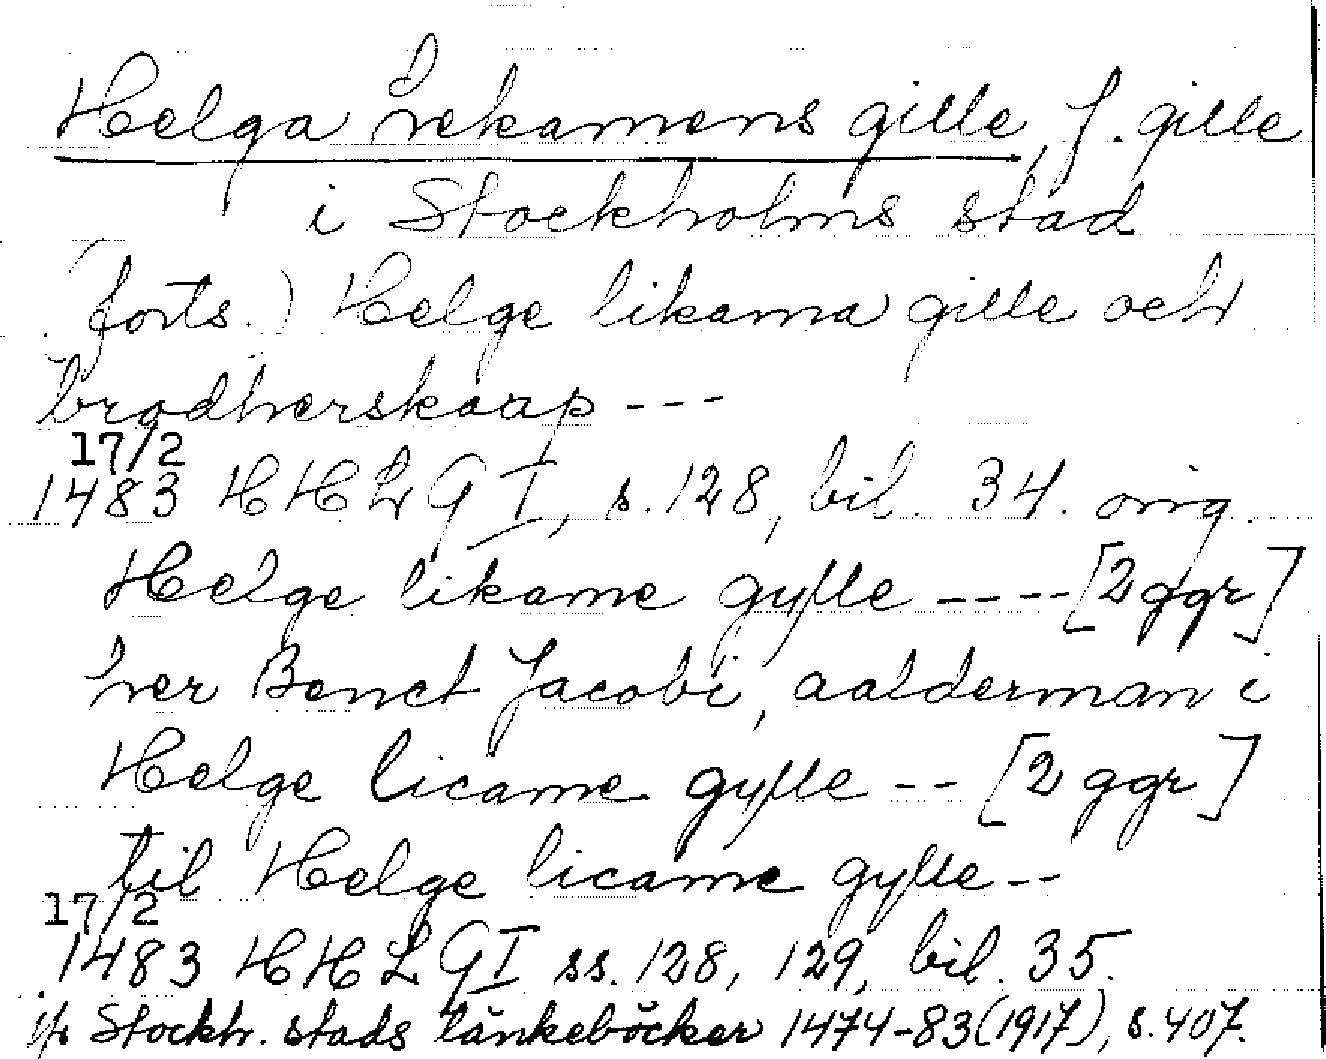 Helga lekamens gille, f. gille
i Stockholms stad
(forts.) Helge likama gille och
brodherskaap ---
17/2
1483 HHLG I, s. 128, bil. 34. orig.
Helge likame gylle ---- [2 ggr]
her Benct Jacobi, aalderman i
Helge licame gylle -- [2 ggr]
til Helge licame gylle --
17/2
1483 HHLG I ss. 128, 129, bil. 35.
jfr Stockh. stads tänkeböcker 1474-83 (1917), s. 407.